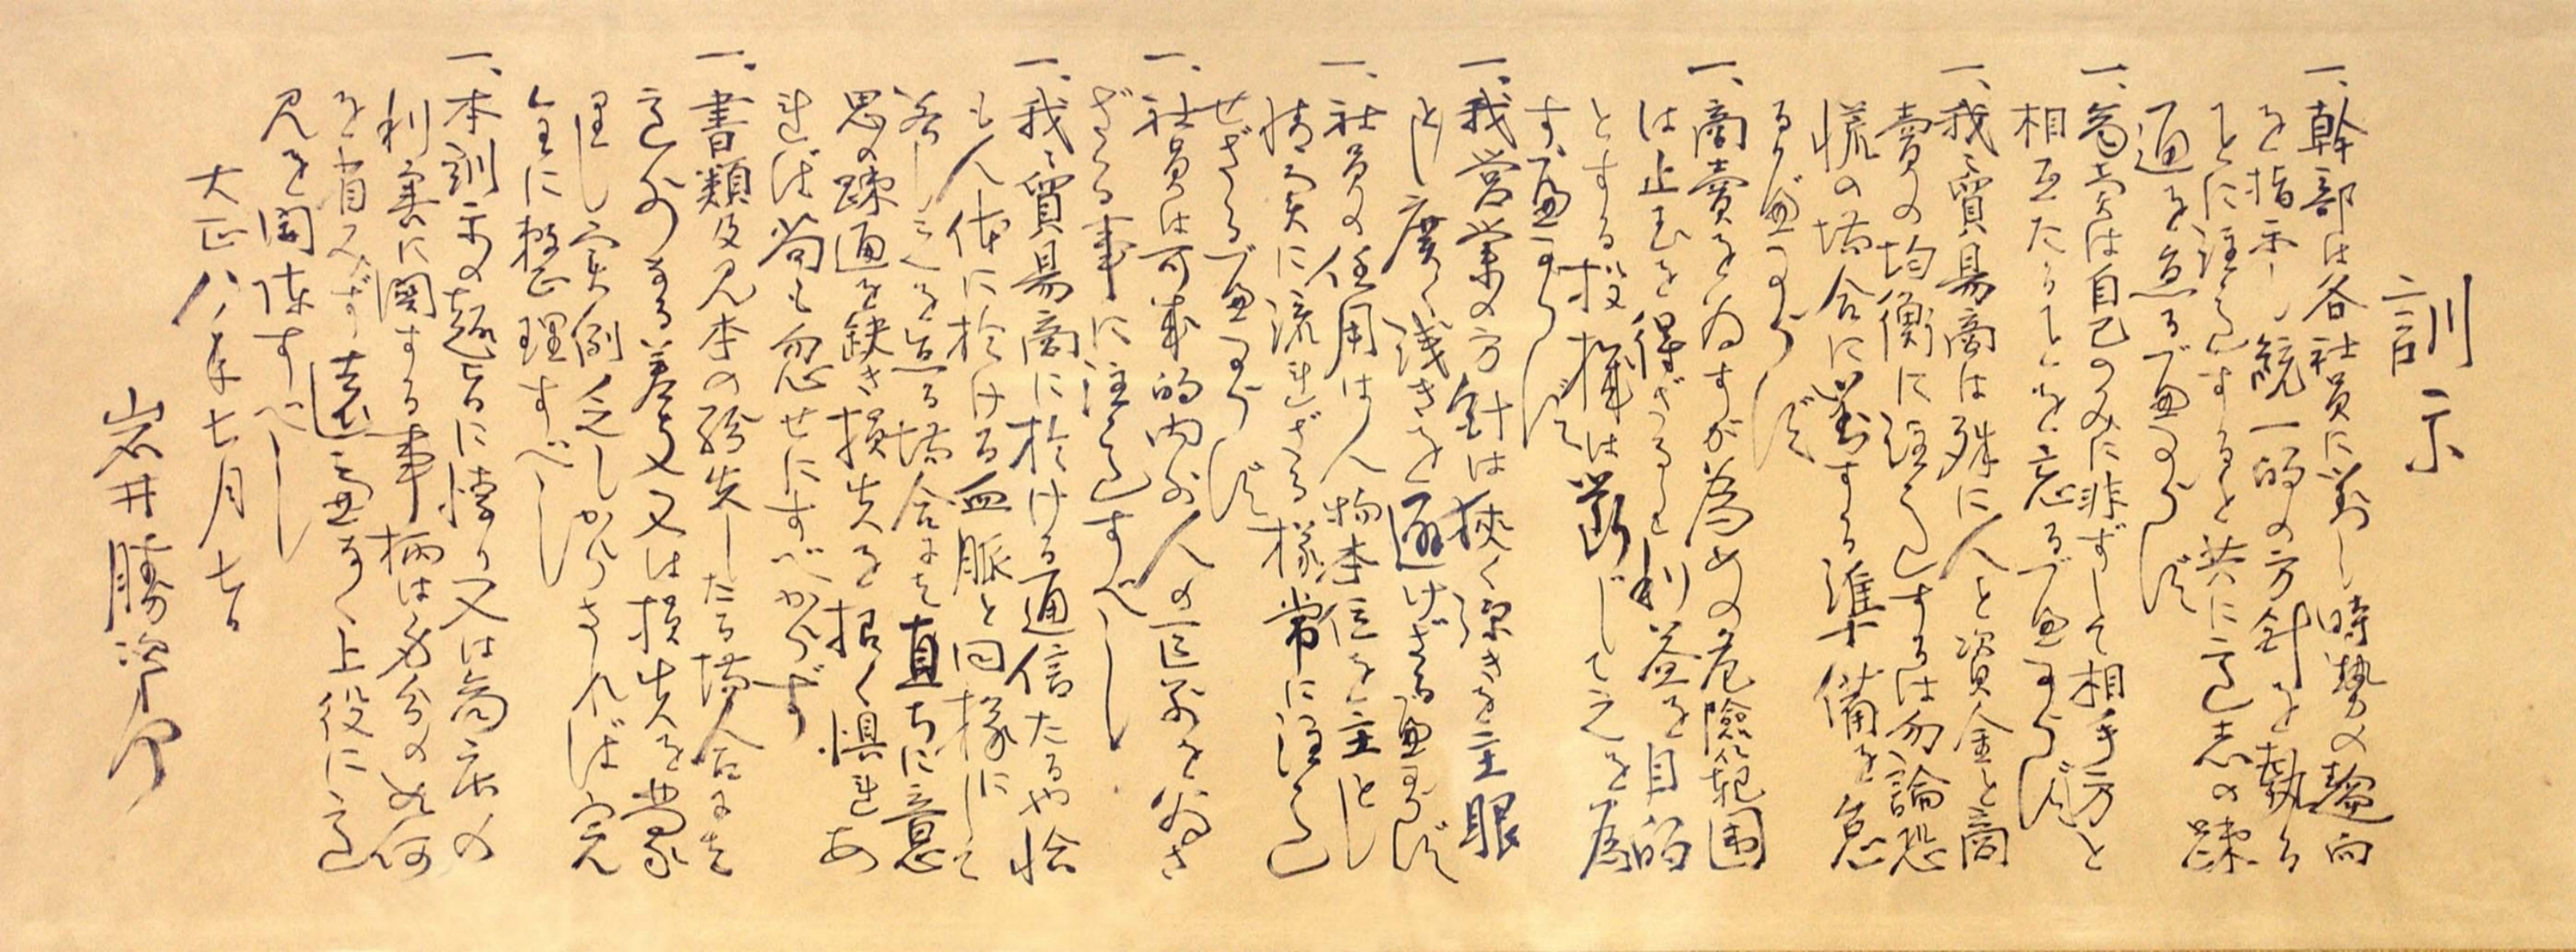 訓示
一、幹部は各社員に対し時勢の趨向
を指示し、統一的の方針を執る
ことに注意すると共に意志の疎
通を怠る可からず
一、商売は自己のみに非ずして相手方と
相互たることを忘る可からず
一、我が貿易商は殊に人と資金と商
売の均衡に注意するは勿論恐
慌の場合に対する準備を怠
る可からず
一、商売を為すが為めの危険範囲
は止むを得ざるも利益を目的
とする投機は断じて之を為
す可からず
一、我営業の方針は狭く深きを主眼
とし広く浅きを避けざる可からず
一、社員の任用は人物本位を主とし
情実に流れざる様常に注意
せざる可からず
一、社員は可成的内外人の区別を為さ
ざる事に注意すべし
一、我が貿易商に於ける通信たるや恰
も人体に於ける血脈と同様にして
若し之を怠る場合は直ちに意
思の疎通を欠き損失を招く惧れあ
れば苟も忽せにすべからず
一、書類及見本の紛失したる場合は
意外なる差支又は損失を蒙
理し実例乏しからざれば完
全に整理すべし
一、本訓示の趣旨に悖り又は商店の
利害に関する事柄は身分の如何
を省みず遠慮なく上役に意
見を開陳すべし
大正八年七月七日
岩井勝次郎